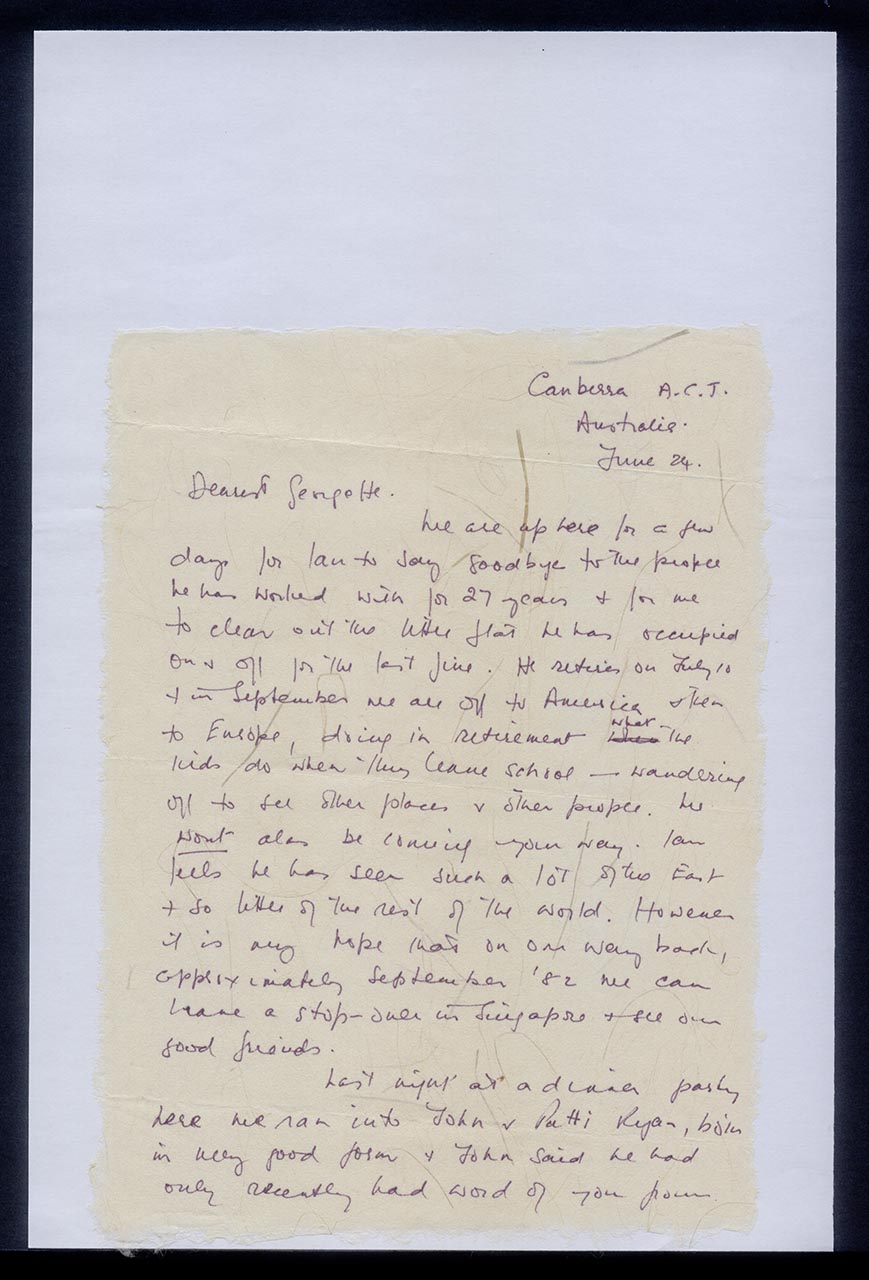 Canberra A.C.T.
Australia.
June 24.
Dearest Georgette.
We are up here for a few
days for Ian to say goodbye to the people
he has worked with for 27 years + for me
to clear out the little flat he has occupied
on + off for the last five. He retires on July 10
+ in September we are off to America + then
to Europe, doing in retirement what the
kids do when they leave school — wandering
off to see other places + other people. We
wont alas be coming your way. Ian
feels he has seen such a lot of the East
+ so little of the rest of the world. However
it is my hope that on our way back,
approximately September '82 we can
have a stop-over in Singapore + see our
good friends.
Last night at a dinner party
here we ran into John + Patti Ryan, both
in very good form + John said he had
only recently had word of you from